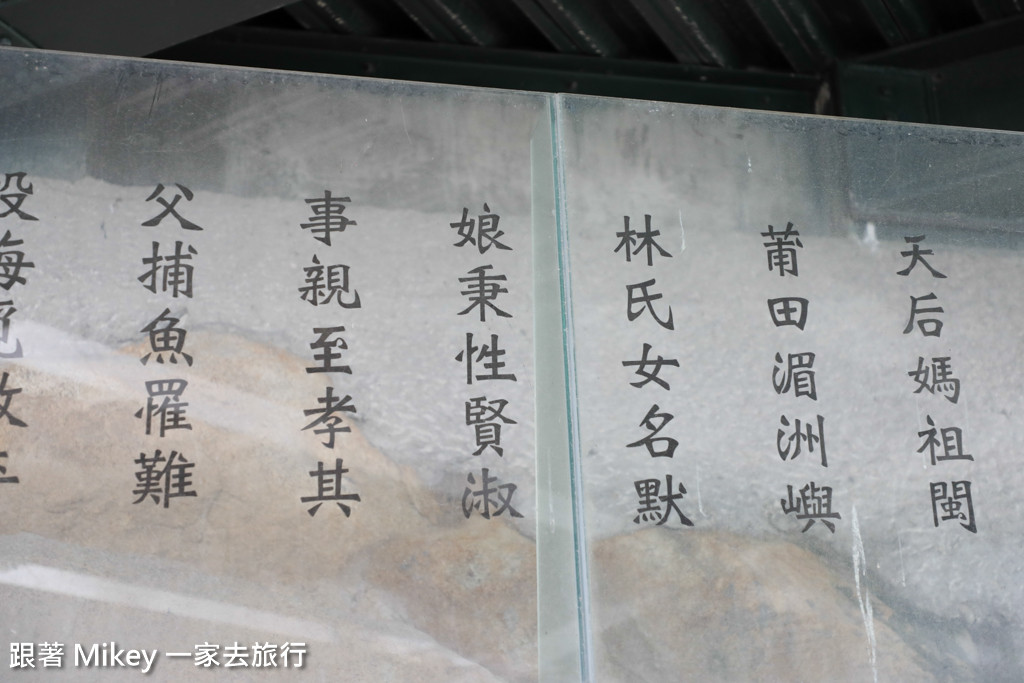 天后媽祖閩
莆田湄洲嶼
林氏女名默
娘秉性賢淑
事親至孝其
父捕魚罹難
投海
跟著 Mikey 一家去旅行